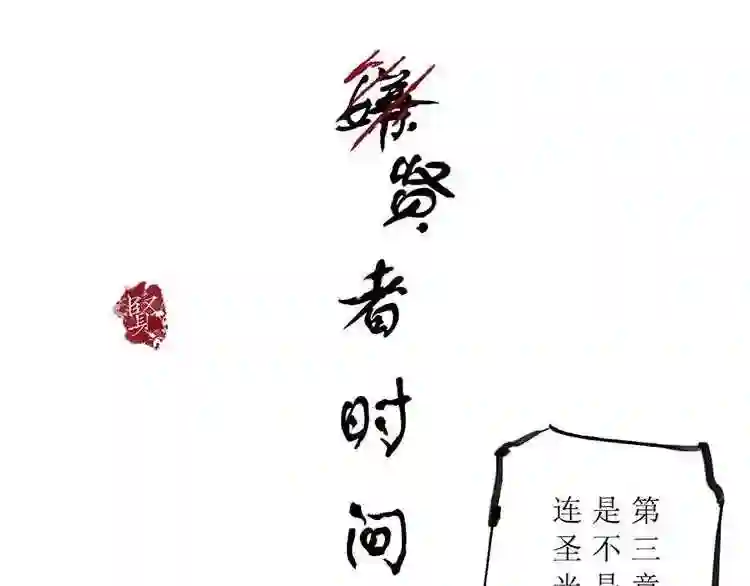 嫌贤者时间
賢
第三章
是不是
连圣光